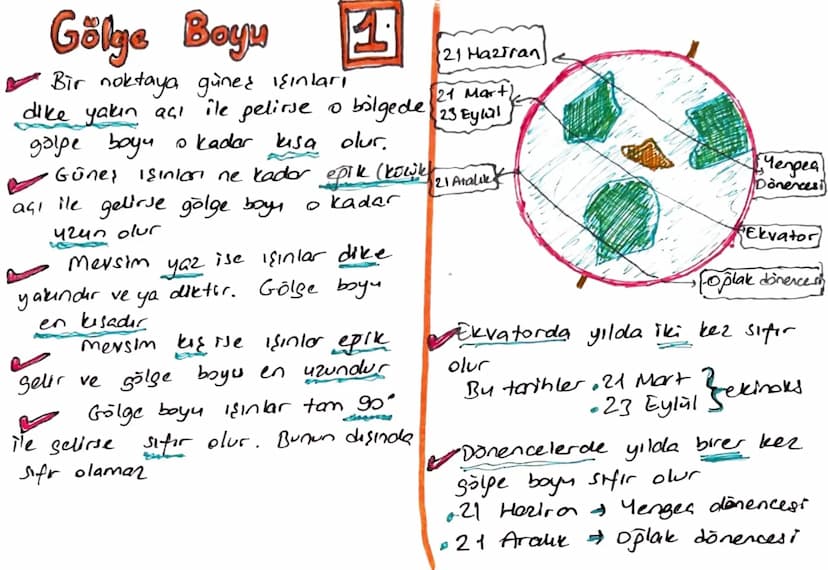 Gölge Boyu
1
Bir noktaya güneş ışınları
dike yakın açı ile gelirse o bölgede
gölge boyu o kadar kısa olur.
Güneş ışınları ne kadar eğik (küçük
açı ile gelirse gölge boyu o kadar
uzun olur
Mevsim yaz ise ışınlar dike
yakındır ve ya diktir. Gölge boyu
en kısadır
Mevsim kış ise ışınlar eğik
gelir ve gölge boyu en uzundur
Gölge boyu ışınlar tam 90°
ile gelirse sıfır olur. Bunun dışında
sıfır olamaz
21 Haziran
21 Mart
23 Eylül
21 Aralık
Yengeç
Dönencesi
Ekvator
Oğlak dönencesi
Ekvatorda yılda iki kez sıfır
olur
Bu tarihler • 21 Mart
• 23 Eylül
ekinoks
Dönencelerde yılda birer kez
gölge boyu sıfır olur
• 21 Haziran → Yengeç dönencesi
• 21 Aralık → Oğlak dönencesi